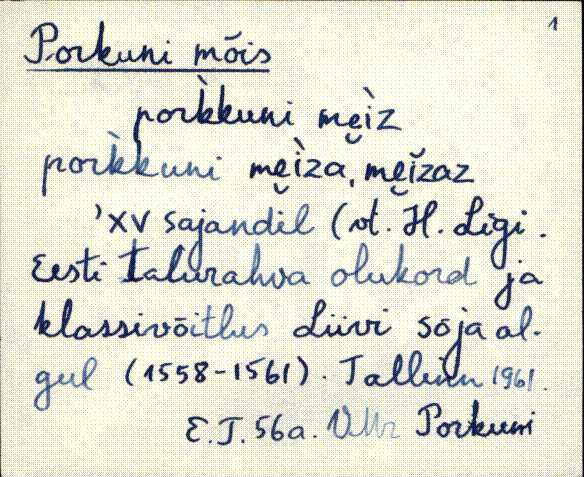 1
Porkuni mõis
pork̀kuni me̮ìz
pork̀kuni me̮ìza, me̮ĭzaz
'XV sajandil (vt. H. Ligi.
Eesti talurahva olukord ja
klassivõitlus Liivi sõja al-
gul (1558-1561). Tallinn 1961.
E.J. 56a. VMr Porkuni